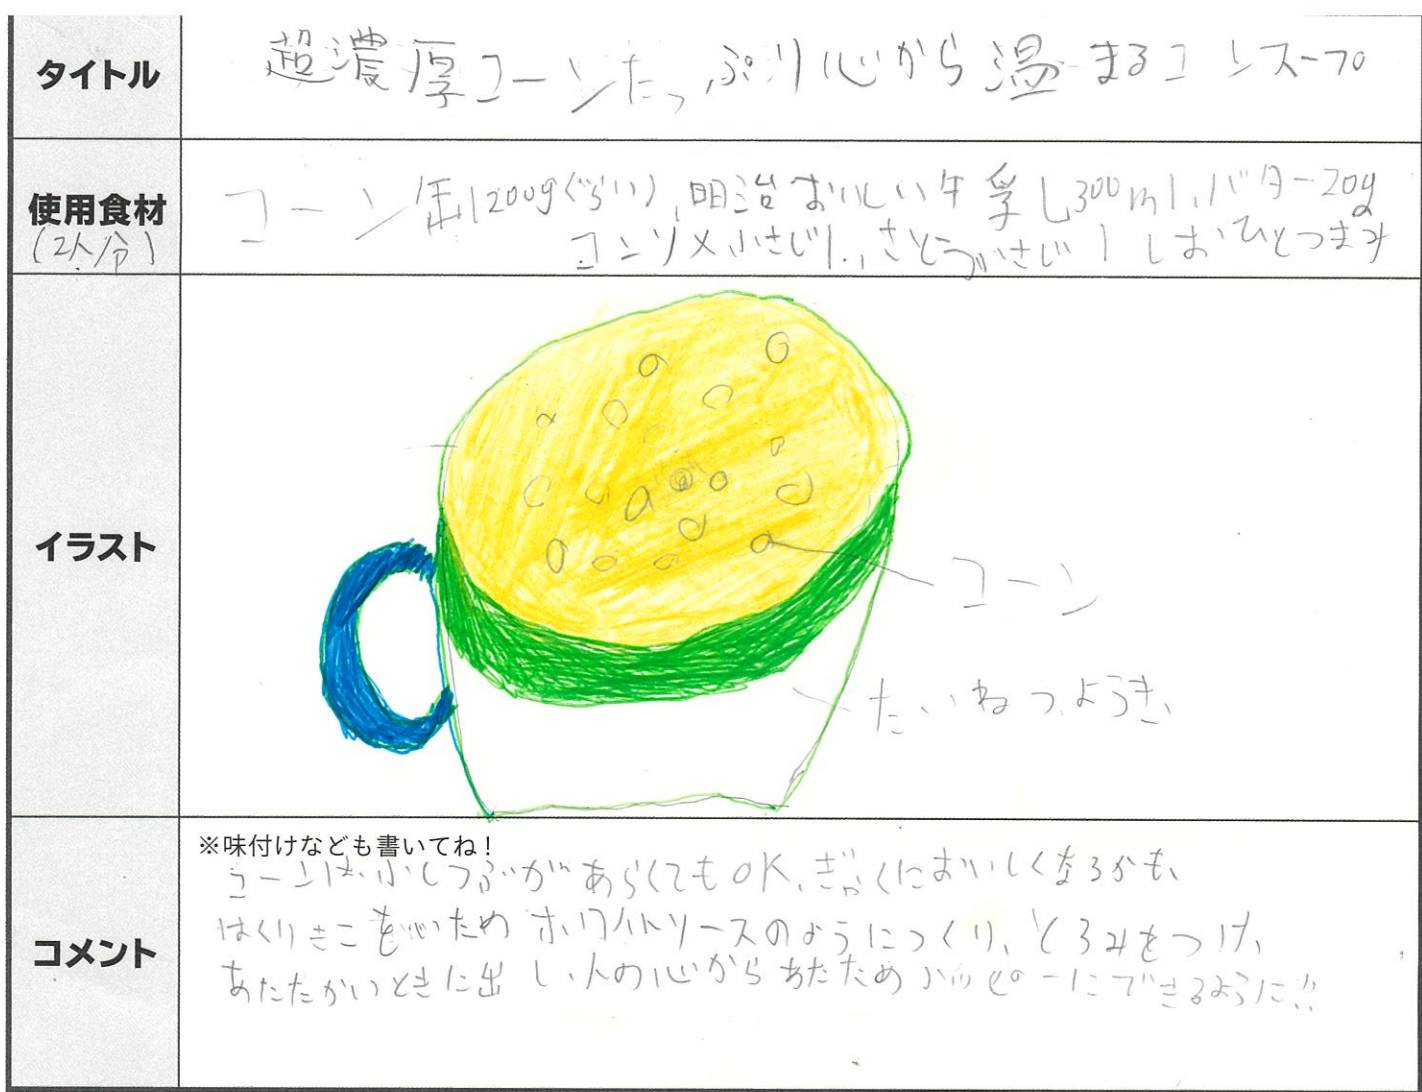 タイトル
超濃厚コーンたっぷり心から温まるコンスープ
使用食材
(2人分)
コーン缶1200gぐらい)、明治おいしい牛乳し300ml、バター20g
コンソメ小さじ1、さとう小さじ1 しおひとつまみ
イラスト
コーン
たいねつようき
コメント
※味付けなども書いてね!
コーンは、少しつぶがあらくてもOK、ぎゃくにおいしくなるかも、
はくりきこをいためホワイトソースのようにつくり、とろみをつけ、
あたたかいときに出し、人の心からあたためハッピーにできるように!!